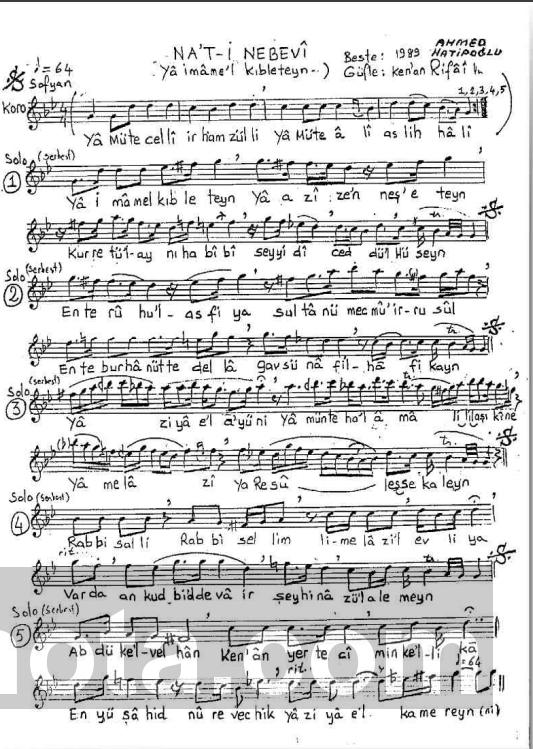 NA'T-İ NEBEVÎ
Yâ imâme'l Kıbleteyn..)
Beste: 1989 AHMED HATİPOĞLU
Güfte: Ken'an Rifâî
♩=64
Sofyan
Koro
1,2,3,4,5
Yâ Müte cel lî ir ham zül li Yâ Müte â lî as lih hâ li
Solo (Serbest)
1
Yâ i mâmel kıb le teyn Yâ a zî ze'n neş'e teyn
tr.
Kur re tü'l-ay ni ha bî bî seyyi dî ced dü'l Hü seyn
Solo (Serbest)
2
En te rû hu'l - as fi ya sul tâ nü mec mû' ir-ru sül
tr.
En te bur hâ nüt te del lâ gav sü nâ fil - hâ fi kayn
Solo (serbest)
3
Yâ zi yâ e'l a'yü ni Yâ münte ha'l â mâ li
tr.
Yâ me lâ zî Ya Re sû leşse ka leyn
Solo (Serbest)
4
Rab bi sal li Rab bi sel lim li-me lâ zi'l ev li ya
rit.
Var da an kud bid de vâ ir şey hi nâ zü'l a le meyn
Solo (Serbest)
5
Ab dü ke'l-vel hân Ken'ân yer te cî min ke'l-li kâ
♩=64
rit.
En yü şâ hid nû re vec hik yâ zi yâ e'l ka me reyn (ni)
nota.com